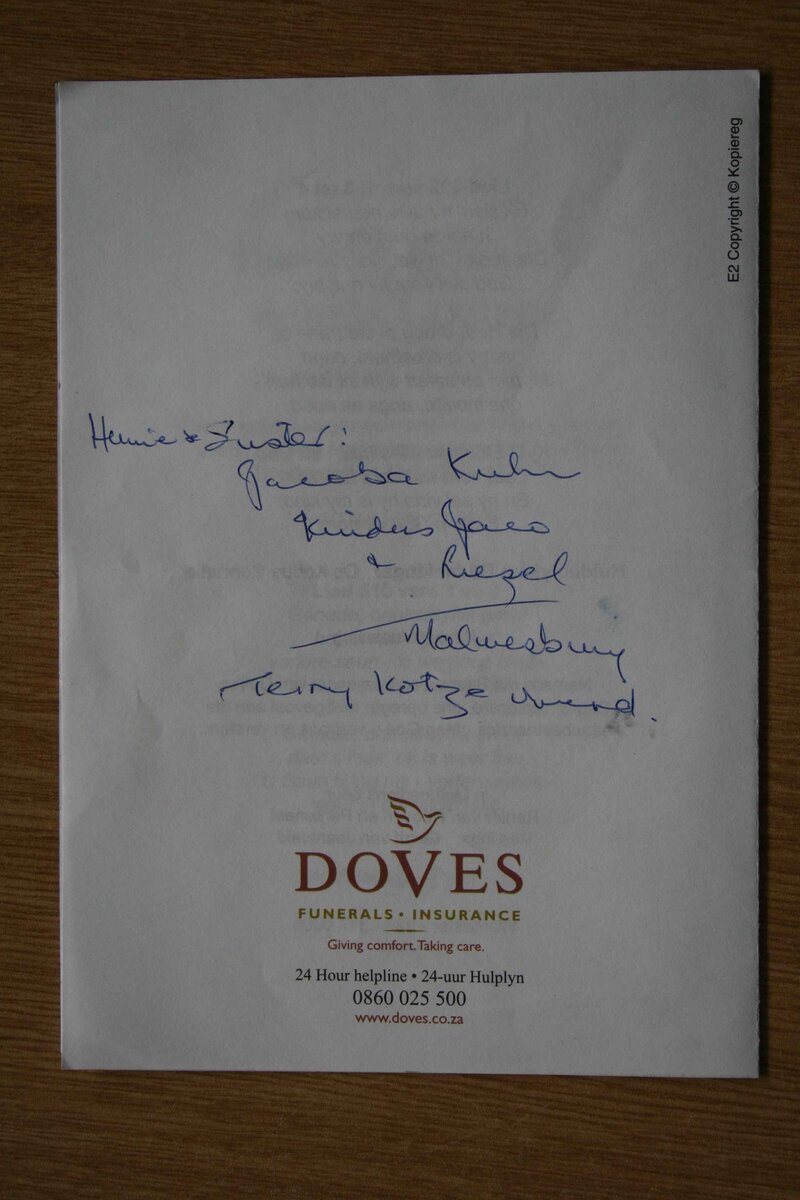 E2 Copyright © Kopiereg
Hennie & Suster:
Jacoba Kuhn
Kinders Jaco
& Liezel
Malmesbury
Terry Kotze vriend.
DOVES
FUNERALS • INSURANCE
Giving comfort. Taking care.
24 Hour helpline • 24-uur Hulplyn
0860 025 500
www.doves.co.za